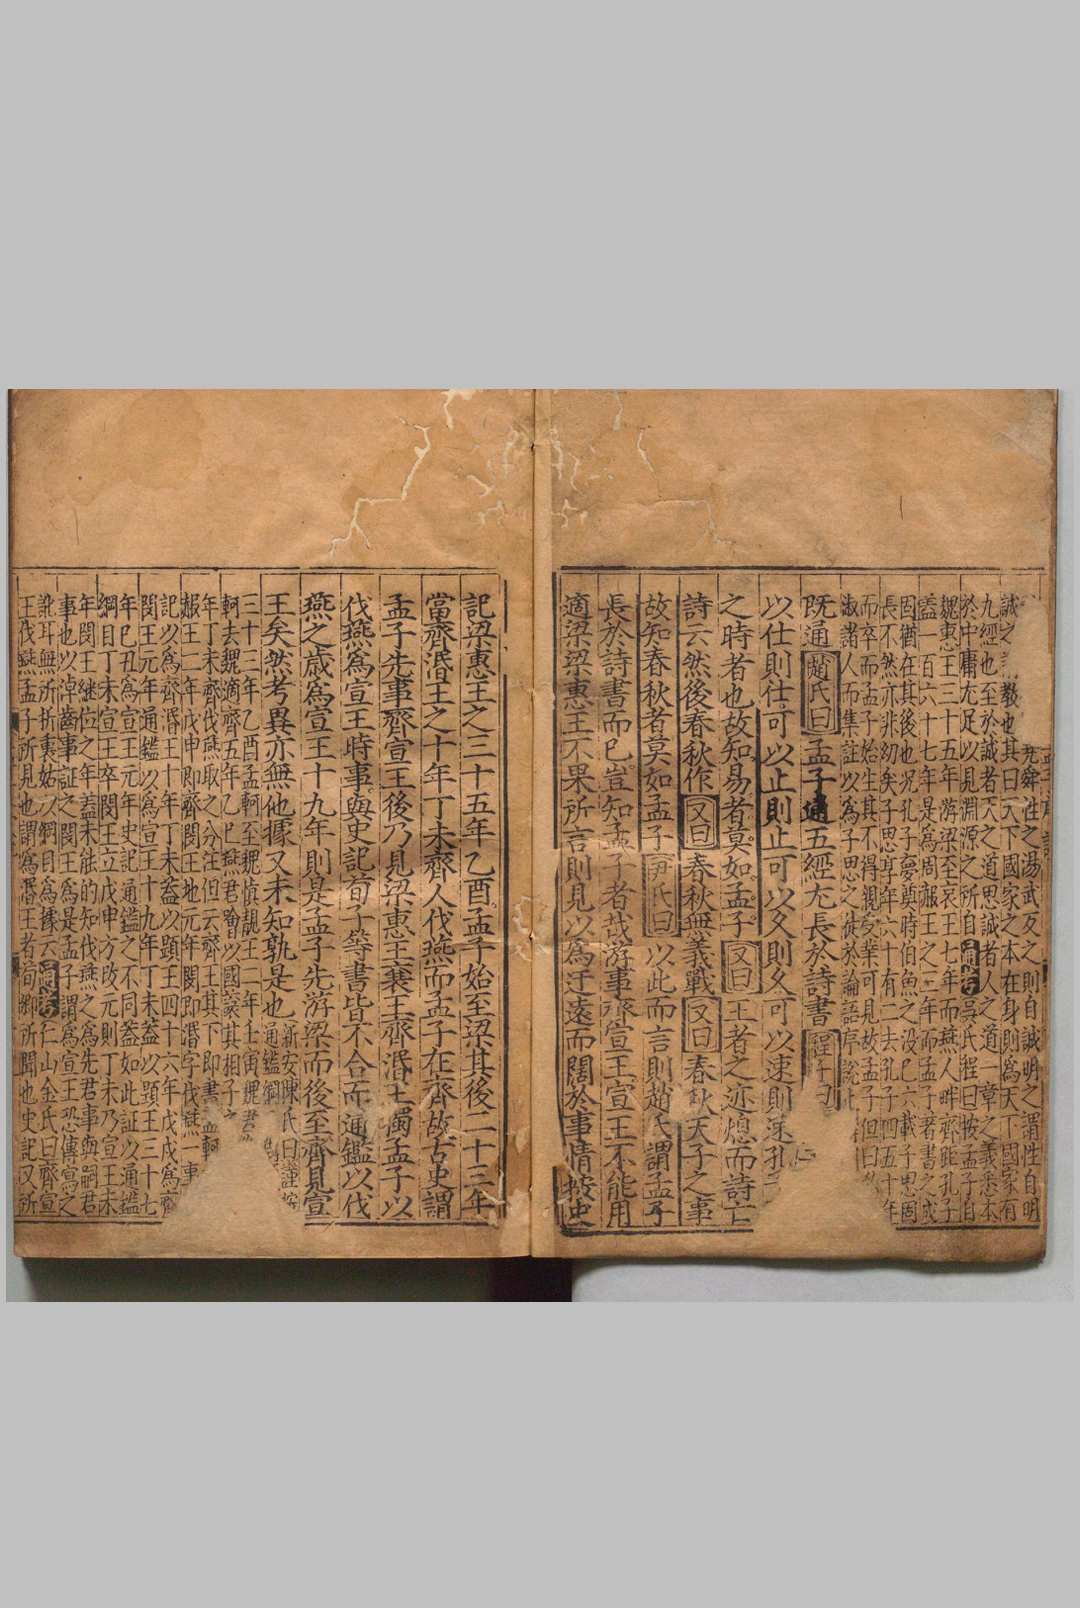 堯舜性之湯武反之則自誠明之謂性自明
誠之 教也其曰天下國家之本在身則爲天下國家有
九經也至於誠者天之道思誠者人之道一章之義悉本
於中庸尤足以見淵源之所自通考吳氏程曰按孟子自
魏惠王三十五年游梁至哀王七年而燕人畔齊距孔子
蓋一百六十七年是爲周赧王之三年而孟子著書之成
固猶在其後也況孔子夢奠時伯魚之没已六載子思固
長不然亦非幼矣子思享年六十有二去孔子四五十年
而卒而孟子始生其不得親受業可見故孟子但曰私
淑諸人而集註以爲子思之徒於論語序說
既通趙氏曰孟子通五經尤長於詩書程子曰
以仕則仕可以止則止可以久則久可以速則速孔
之時者也故知易者莫如孟子又曰王者之迹熄而詩亡
詩云然後春秋作又曰春秋無義戰又曰春秋天子之事
故知春秋者莫如孟子尹氏曰以此而言則趙氏謂孟子
長於詩書而已豈知孟子者哉游事齊宣王宣王不能用
適梁梁惠王不果所言則見以爲迂遠而闊於事情按史
記梁惠王之三十五年乙酉孟子始至梁其後二十三年
當齊湣王之十年丁未齊人伐燕而孟子在齊故古史謂
孟子先事齊宣王後乃見梁惠王襄王齊湣王獨孟子以
伐燕爲宣王時事與史記荀子等書皆不合而通鑑以伐
燕之歲爲宣王十九年則是孟子先游梁而後至齊見宣
王矣然考異亦無他據又未知孰是也新安陳氏曰謹按
通鑑綱
三十三年乙酉孟軻至魏慎靚王二年壬寅魏君
軻去魏適齊五年乙巳燕君噲以國讓其相子之
年丁未齊伐燕取之分注但云齊王其下即書孟軻
赧王二年戊申即齊閔王地元年即湣字伐燕一事
記以爲齊湣王十年丁未蓋以顯王四十六年戊戌爲齊
閔王元年通鑑以爲宣王十九年丁未蓋以顯王三十七
年已丑爲宣王元年史記通鑑之不同蓋如此証以通鑑
綱目丁未宣王卒閔王立戊申方改元則丁未乃宣王末
年閔王繼位之年蓋未能的知伐燕之爲先君事與嗣君
事也以淖齒事証之閔王爲是孟子謂爲宣王恐傳寫之
訛耳無所折衷姑以綱目爲據云通考仁山金氏曰齊宣
王伐燕孟子所見也謂爲湣王者荀卿所聞也史記又所